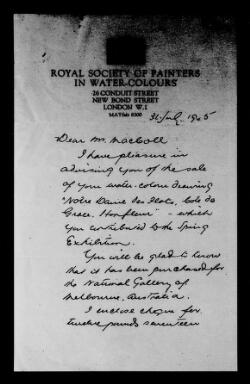 ROYAL SOCIETY OF PAINTERS
IN WATER-COLOURS
26 CONDUIT STREET
NEW BOND STREET
LONDON W.1
MAYfair 8300
31 July 1945
Dear Mr. MacColl
I have pleasure in
advising you of the sale
of your water-colour drawing
"Notre Dame des Flots, Côte de
Grace, Honfleur" - which
you contributed to the Spring
Exhibition.
You will be glad to know
that it has been purchased for
the National Gallery of
Melbourne, Australia.
I enclose cheque for
twelve pounds seventeen